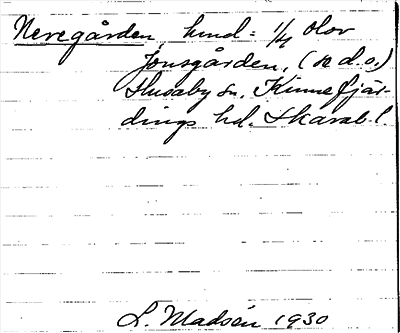 Neregården, hmd = 1/4 Olov
Jonsgården, (se d.o.)
Husaby sn, Kinnefjär-
dings hd. Skarab.l.
L. Madsén 1930